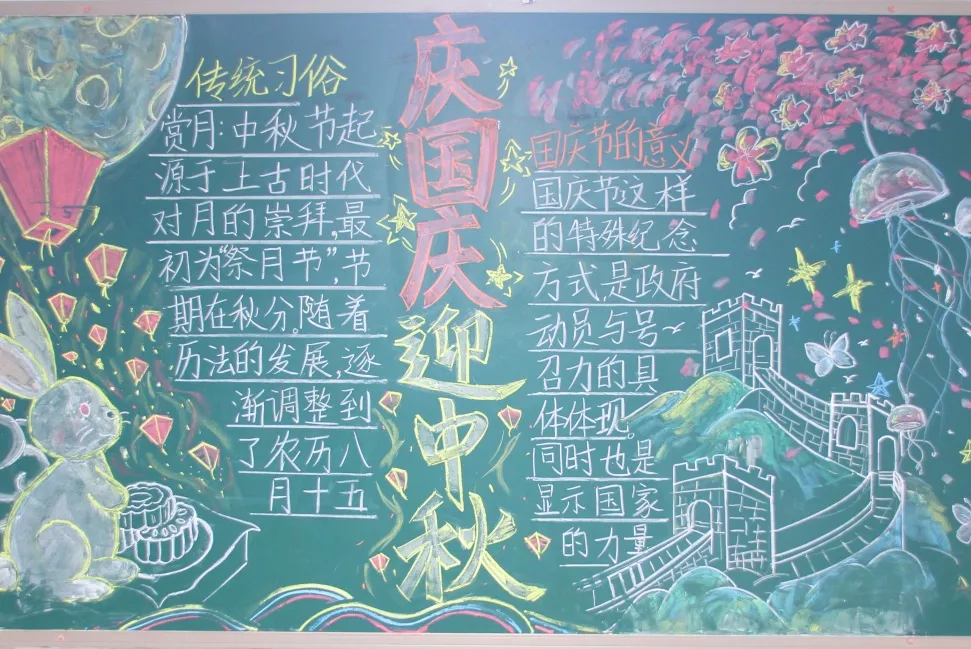 传统习俗
赏月:中秋节起
源于上古时代
对月的崇拜,最
初为“祭月节”,节
期在秋分。随着
历法的发展,逐
渐调整到
了农历八
月十五
庆国庆
迎中秋
国庆节的意义
国庆节这样
的特殊纪念
方式,是政府
动员与号
召力的具
体体现。
同时也是
显示国家
的力量